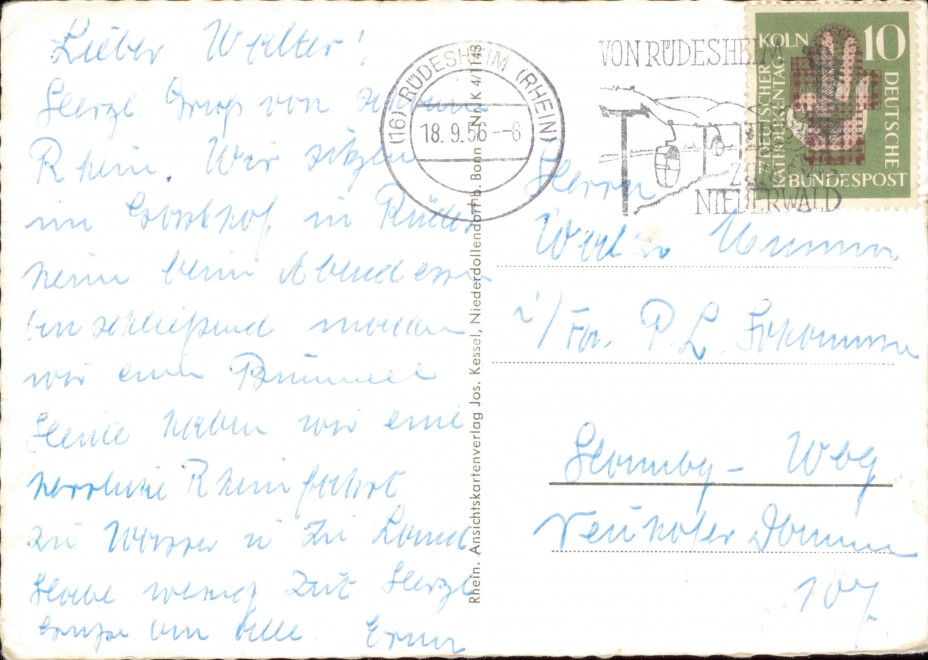 Lieber Walter!
Herzl. Gruß vom schönen
Rhein. Wir sitzen
im in Rüdes
heim beim Abendessen
anschließend machen
wir einen Bummel
Heute haben wir eine
herrliche Rheinfahrt
zu Wasser u zu Land
Habe wenig Zeit Herzl
Grüße an alle. Erna
Rhein. Ansichtskartenverlag Jos. Kessel, Niederdollendorf b. Bonn Nr. K 4/1143
(16) RÜDESHEIM (RHEIN)
18.9.56 -6
VON RÜDESHEIM
ZUM
NIEDERWALD
KÖLN 10
DEUTSCHER
KATHOLIKENTAG
DEUTSCHE
BUNDESPOST
Herrn
Walter
i/Fa. P. L.
Hambg - Wbg
Neuhöfer Damm
107